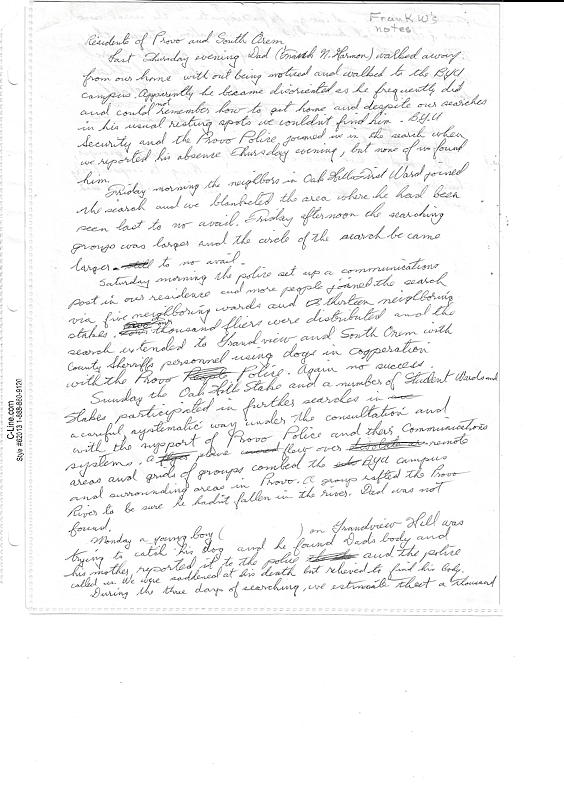 Frank W's
notes
Residents of Provo and South Orem
Last Thursday evening Dad (Frank N. Harmon) walked away
from our home without being noticed and walked to the BYU
campus. Apparently he became as he frequently did
and could not remember how to get home and despite our searches
in his usual resting spots we couldn't find him. BYU
Security and the Provo Police joined in in the search when
we reported his absense Thursday evening, but none of us found
him.
Friday morning the neighbors in Oak Hills First Ward joined
the search and we blanketed the area where he had been
seen last to no avail. Friday afternoon the searching
groups was larger and the circle of the search became
larger to no avail.
Saturday morning the police set up a communications
post in our residence and more people joined the search
via five neighboring wards and thirteen neighboring
stakes. thousand fliers were distributed and the
search extended to Grandview and South Orem with
County Sherriff's personnel using dogs in cooperation
with the Provo Police. Again no success.
Sunday the Oak Hills Stake and a number of Student Wards and
Stakes participated in further searches in
a careful systematic way under the consultation and
with the support of Provo Police and their Communications
systems. A plane flew over remote
areas and grids of groups combed the BYU campus
and surrounding areas in Provo. A group rafted the Provo
River to be sure he hadn't fallen in the river. Dad was not
found.
Monday a young boy ( ) on Grandview Hill was
trying to catch his dog and he found Dads body and
his mother reported it to the police and the police
called us. We were saddened at his death but relieved to find his body.
During the three days of searching, we estimate that a thousand
C-Line.com
Style #62013 1-888-860-9120